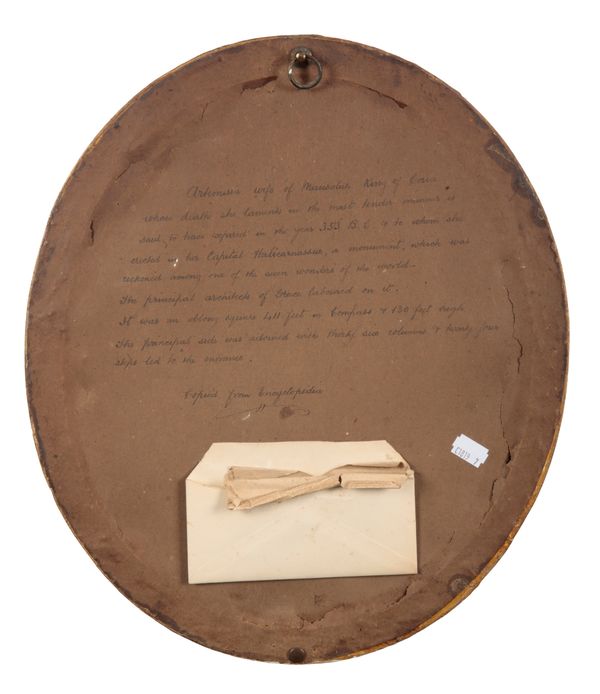 Artemesis wife of Mausolus King of Caria
whose death she laments in the most tender manner is
said to have expired in the year 353 B.C. & to whom she
erected in her Capital Halicarnassus, a monument, which was
reckoned among one of the seven wonders of the world.
The principal architects of Greece laboured on it.
It was an oblong square 411 feet in Compass & 130 feet high
The principal side was adorned with thirty six columns & twenty four
steps led to the entrance.
Copied from Encyclopedia